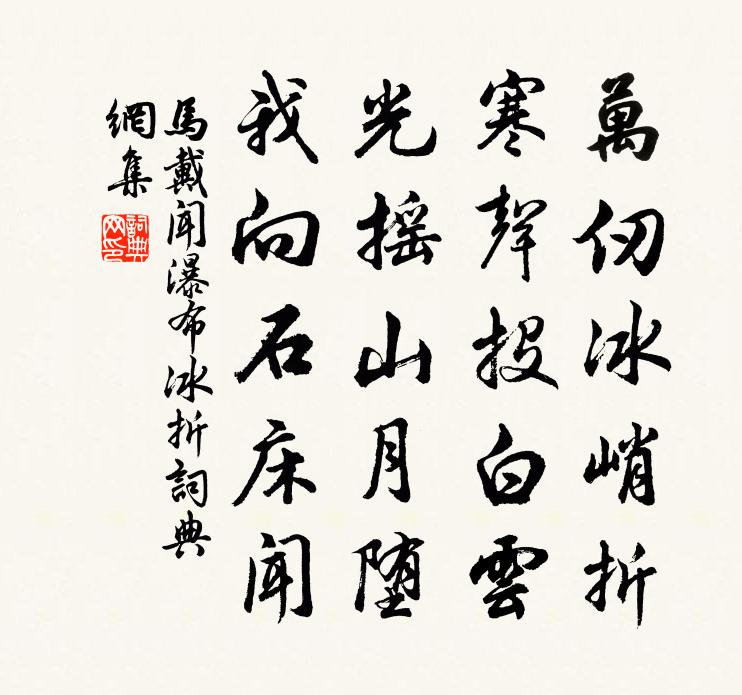 萬仞冰峭折
寒聲投白雲
光摇山月墮
我向石床聞
馬戴聞瀑布冰折詞典
網集
詞典網印